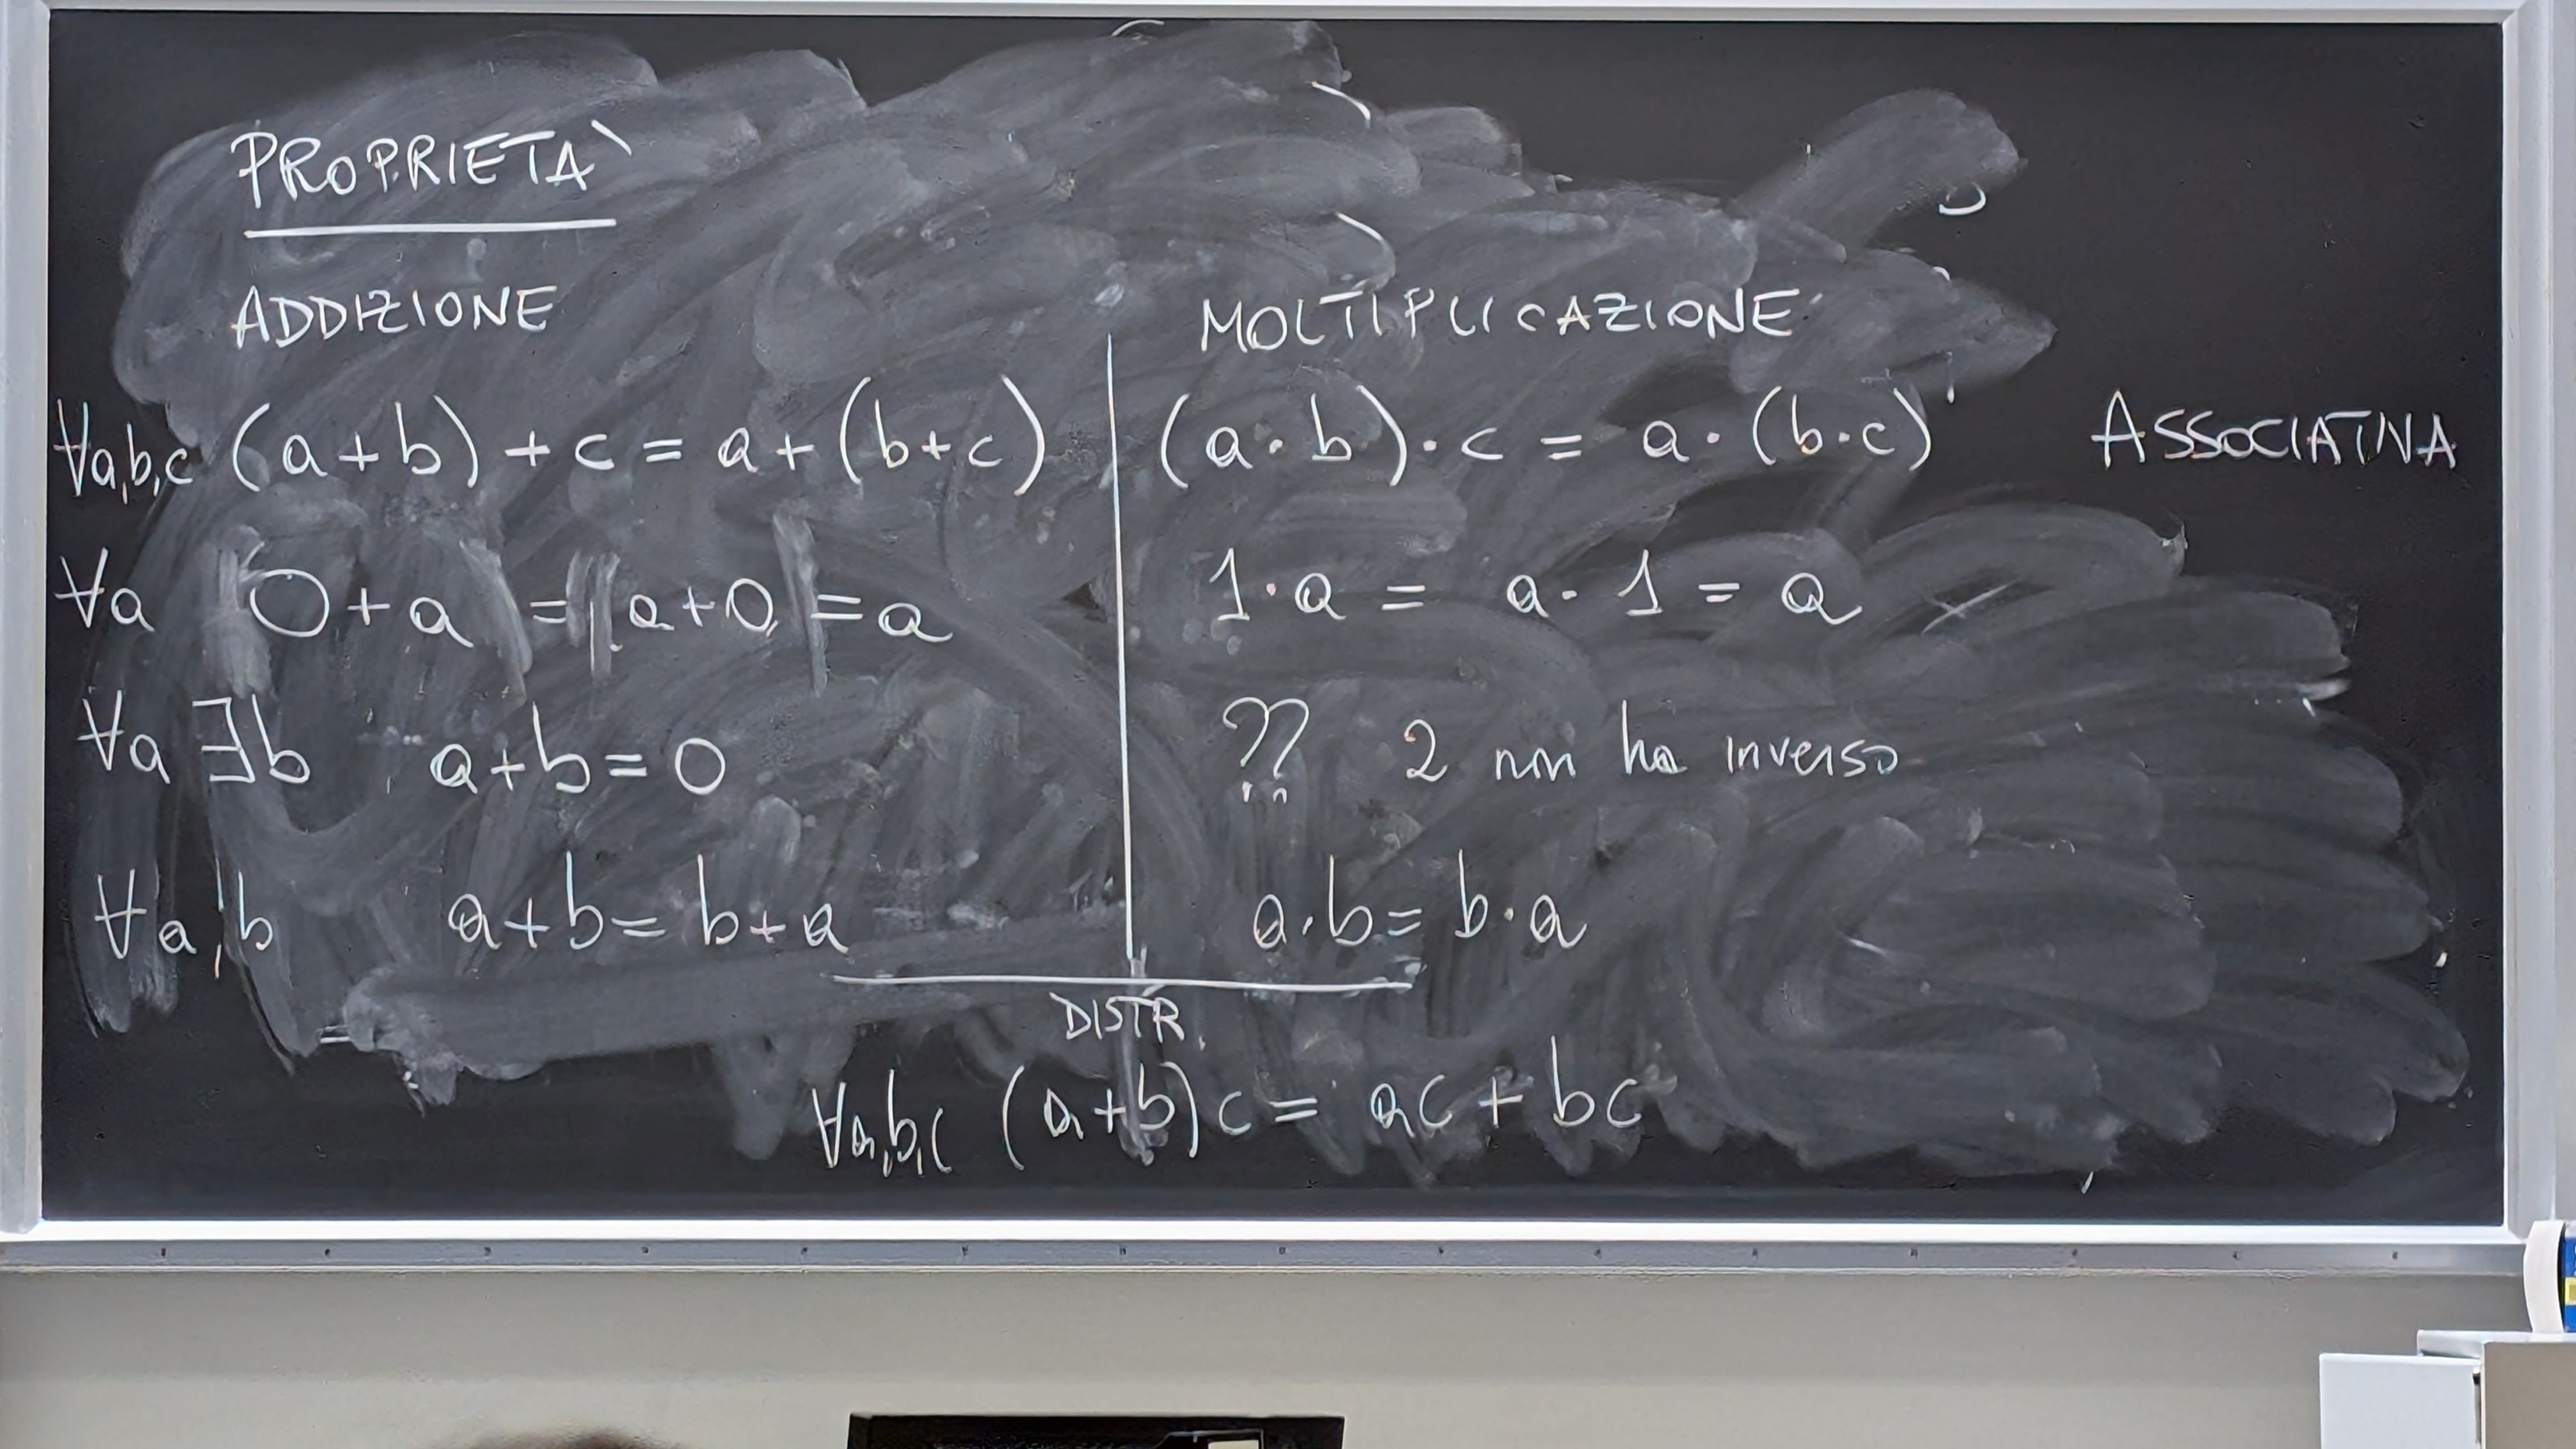 PROPRIETÀ
ADDIZIONE MOLTIPLICAZIONE
∀a,b,c (a+b)+c = a+(b+c) (a·b)·c = a·(b·c) ASSOCIATIVA
∀a 0+a = a+0 = a 1·a = a·1 = a
∀a ∃b a+b=0 ?? 2 non ha inverso
∀a,b a+b=b+a a·b=b·a
DISTR.
∀a,b,c (a+b)c = ac + bc